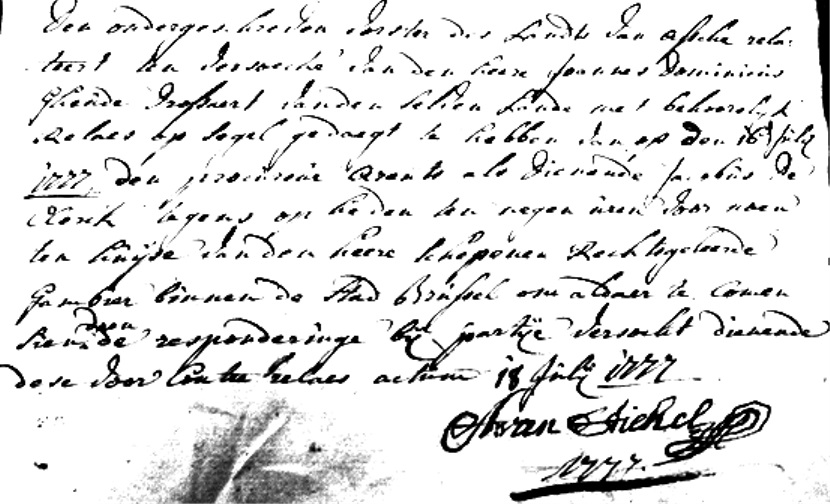 Den ondergeschreven vorster des Landts van Assche rela-
teert ten versoecke van den heere Joannes Dominicus
Gheude Drossaert van den selven Lande met behoorelyck
Relaes op segel gedaegt te hebben van op den 16 July
1777 den procureur Arents als dienende Jacobus De
Clerck tegens op heden ten negen uren voor noen
ten huyse van den heere schepenen Rechtsgeleerde
Gambier binnen de Stad Brussel om aldaer te comen
sien doen de responderinge by partye versocht dienende
dese voor Contre Relaes actum 18 July 1777
van Stichel
1777